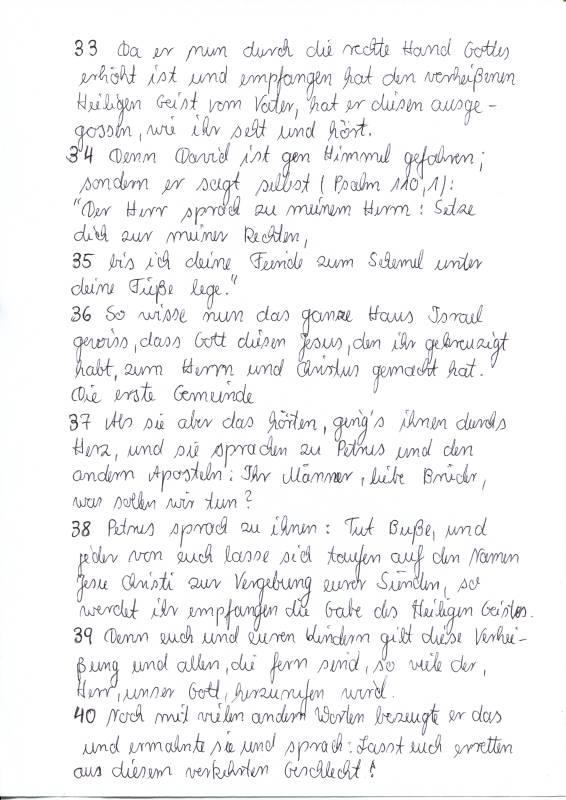 33 Da er nun durch die rechte Hand Gottes
erhöht ist und empfangen hat den verheißenen
Heiligen Geist vom Vater, hat er diesen ausge-
gossen, wie ihr seht und hört.
34 Denn David ist gen Himmel gefahren;
sondern er sagt selbst (Psalm 110,1):
"Der Herr sprach zu meinem Herrn: Setze
dich zur meiner Rechten,
35 bis ich deine Feinde zum Schemel unter
deine Füße lege."
36 So wisse nun das ganze Haus Israel
gewiss, dass Gott diesen Jesus, den ihr gekreuzigt
habt, zum Herrn und Christus gemacht hat.
Die erste Gemeinde
37 Als sie aber das hörten, ging's ihnen durchs
Herz, und sie sprachen zu Petrus und den
andern Aposteln: Ihr Männer, liebe Brüder,
was sollen wir tun?
38 Petrus sprach zu ihnen: Tut Buße, und
jeder von euch lasse sich taufen auf den Namen
Jesu Christi zur Vergebung eurer Sünden, so
werdet ihr empfangen die Gabe des Heiligen Geistes.
39 Denn euch und euren Kindern gilt diese Verhei-
ßung und allen, die fern sind, so viele der,
Herr, unser Gott, herzurufen wird.
40 Noch mit vielen andern Worten bezeugte er das
und ermahnte sie und sprach: Lasst euch erretten
aus diesem verkehrten Geschlecht!